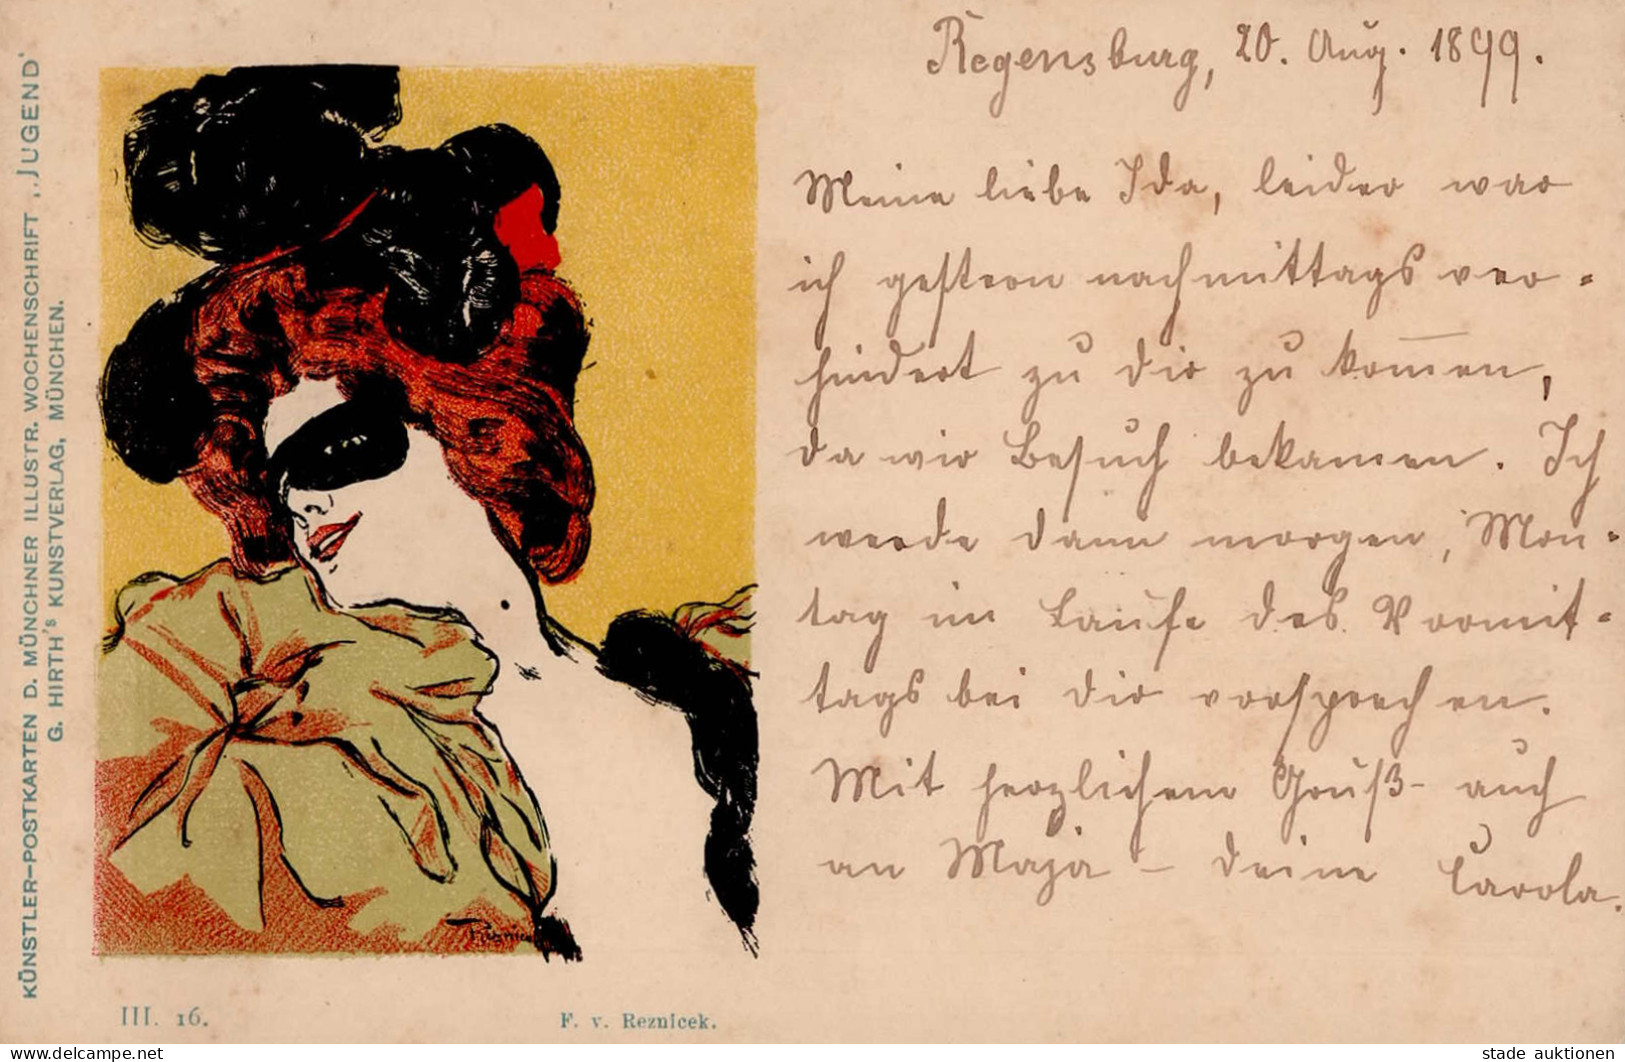 KÜNSTLER-POSTKARTEN D. MÜNCHNER ILLUSTR. WOCHENSCHRIFT „JUGEND"
G. HIRTH'S KUNSTVERLAG, MÜNCHEN.
Regensburg, 20. Aug. 1899.
Meine liebe Ida, leider war
ich gestern nachmittags ver-
hindert zu dir zu kom̅en,
da wir Besuch bekamen. Ich
werde dann morgen, Mon-
tag im Laufe des Vormit-
tags bei dir vorsprechen.
Mit herzlichem Gruß - auch
an Maja - deine Carola.
Reznicek
III. 16.
F. v. Reznicek.
stade auktionen